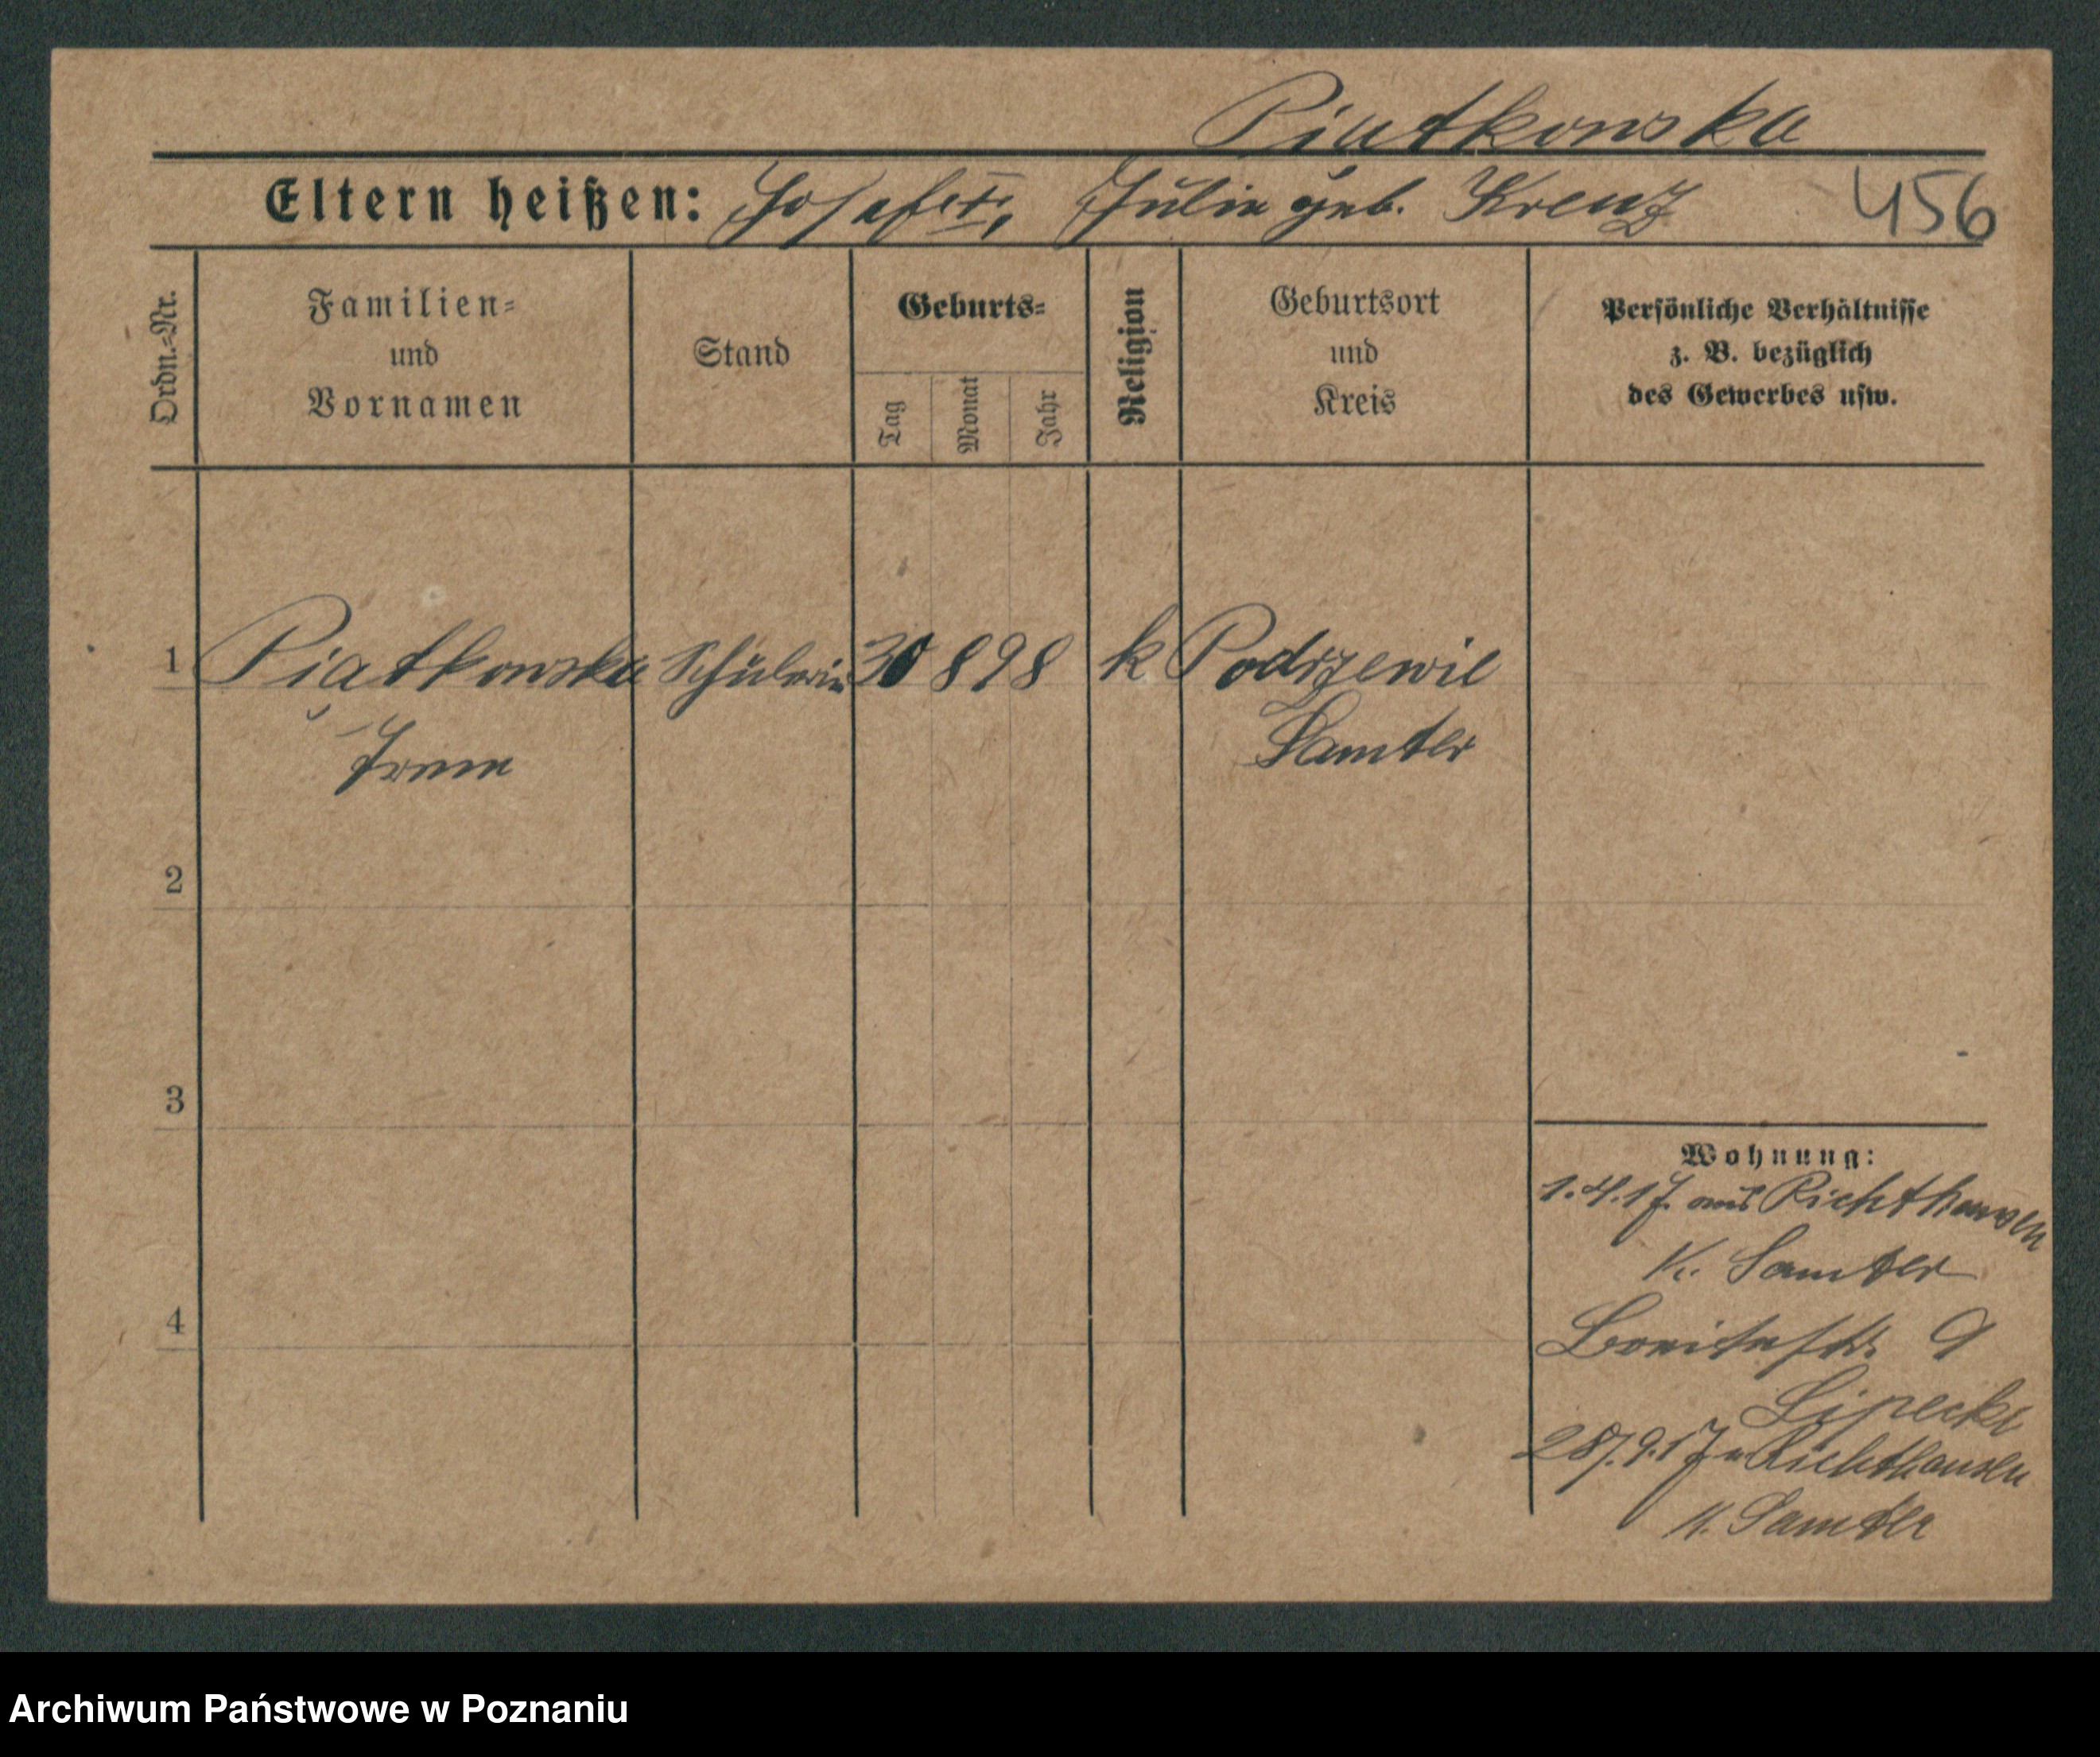 Piatkowska
Eltern heißen: Josef u. Julie geb. Krenz 456
Ordn.-Nr.
Familien-
und
Vornamen
Stand
Geburts-
Tag
Monat
Jahr
Religion
Geburtsort
und
Kreis
Persönliche Verhältnisse
z. B. bezüglich
des Gewerbes usw.
1 Piatkowska Schülerin 30 8 98 k Podrzewie
Irene Samter
2
3
4
Wohnung:
1.4.17. aus Richthausen
K. Samter
Breitestr. 9
Lipecki
28/.9.17 n Richthausen
K. Samter
Archiwum Państwowe w Poznaniu